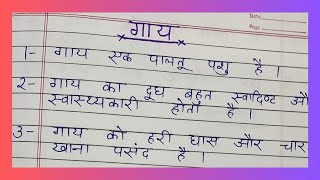 गाय
1- गाय एक पालतू पशु है।
2- गाय का दूध बहुत स्वादिष्ट औ
स्वास्थ्यकारी होता है।
3- गाय को हरी घास और चार
खाना पसंद है।